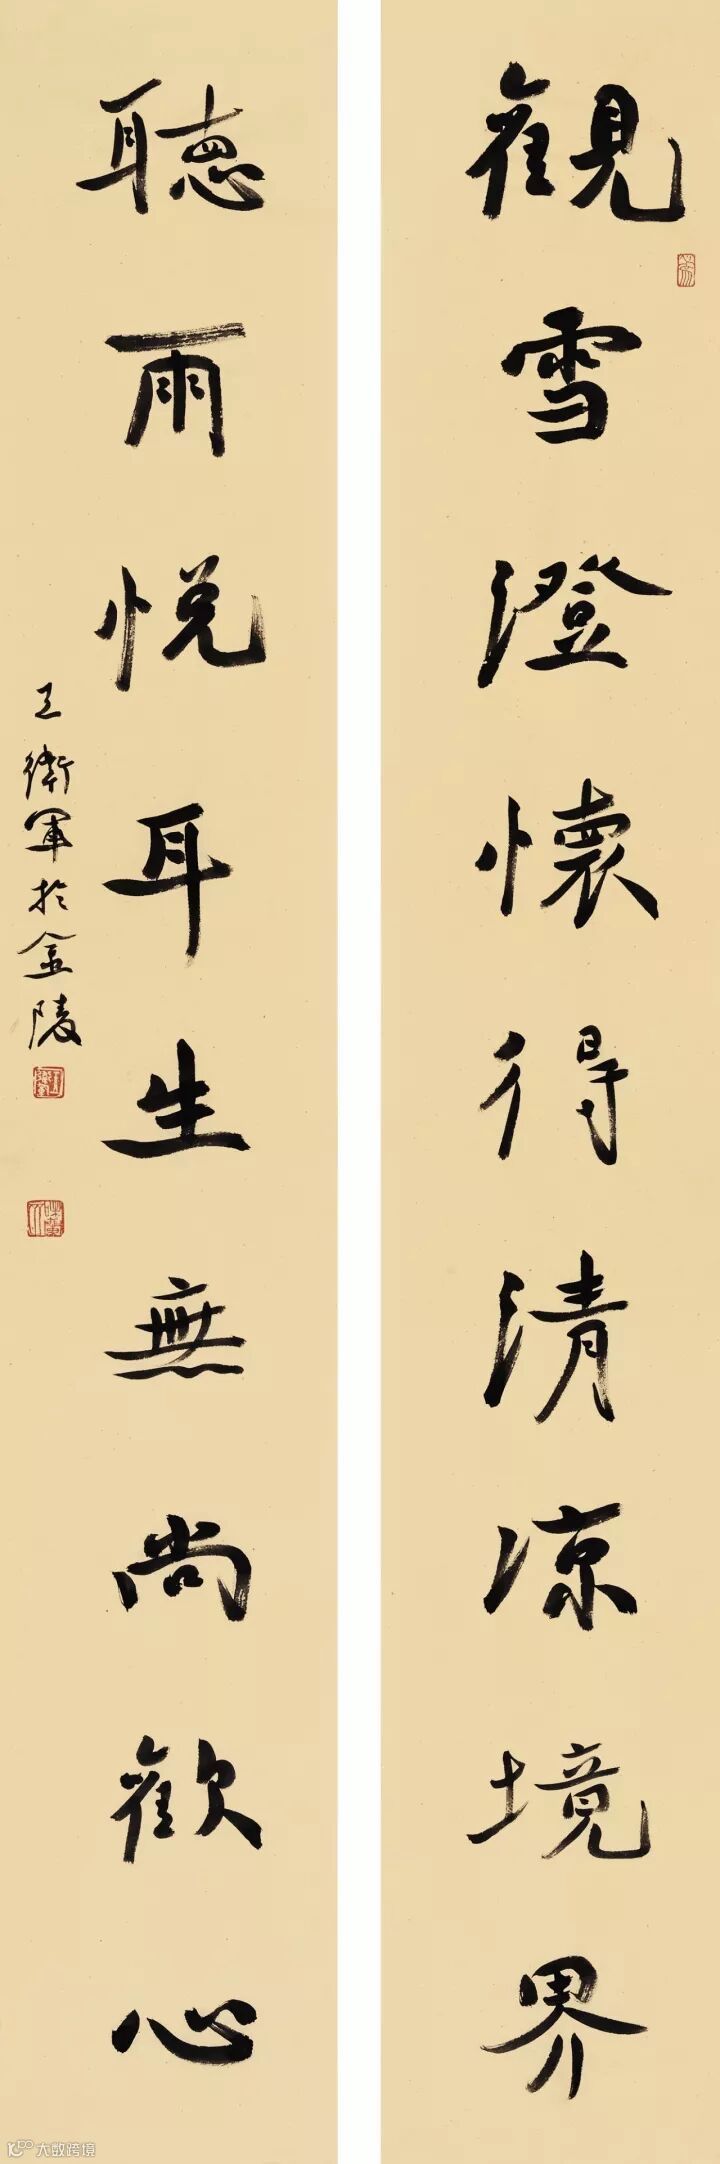 觀雪澄懷得清凉境界
聽雨悦耳生無尚歡心
王衛軍於金陵
大数跨境